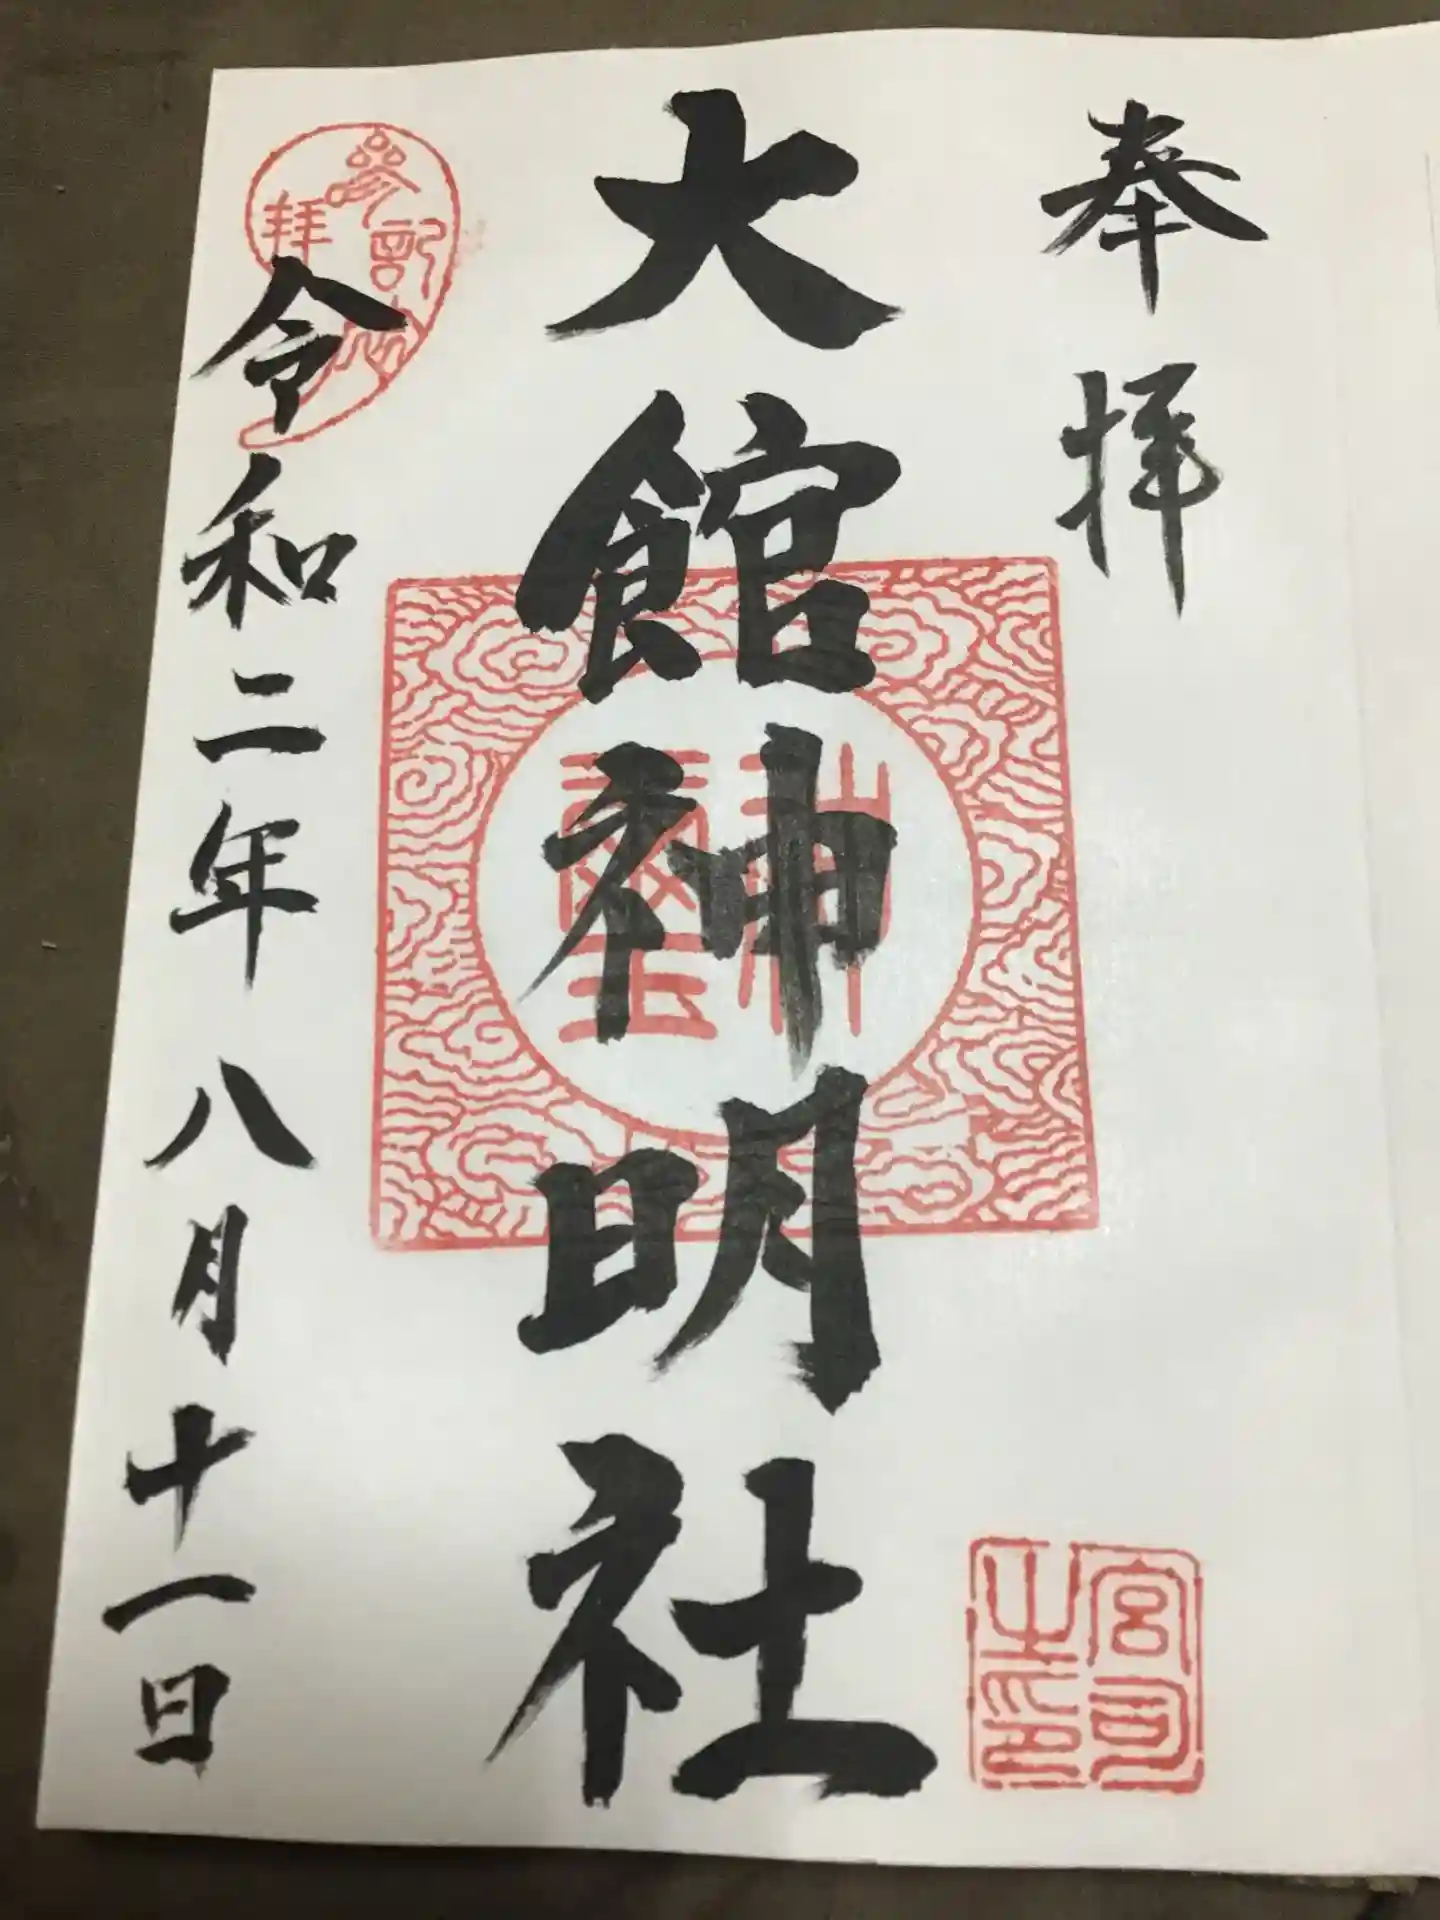 奉拝
大館神明社
令和二年八月十一日
参拝記念
神璽
宮司之印